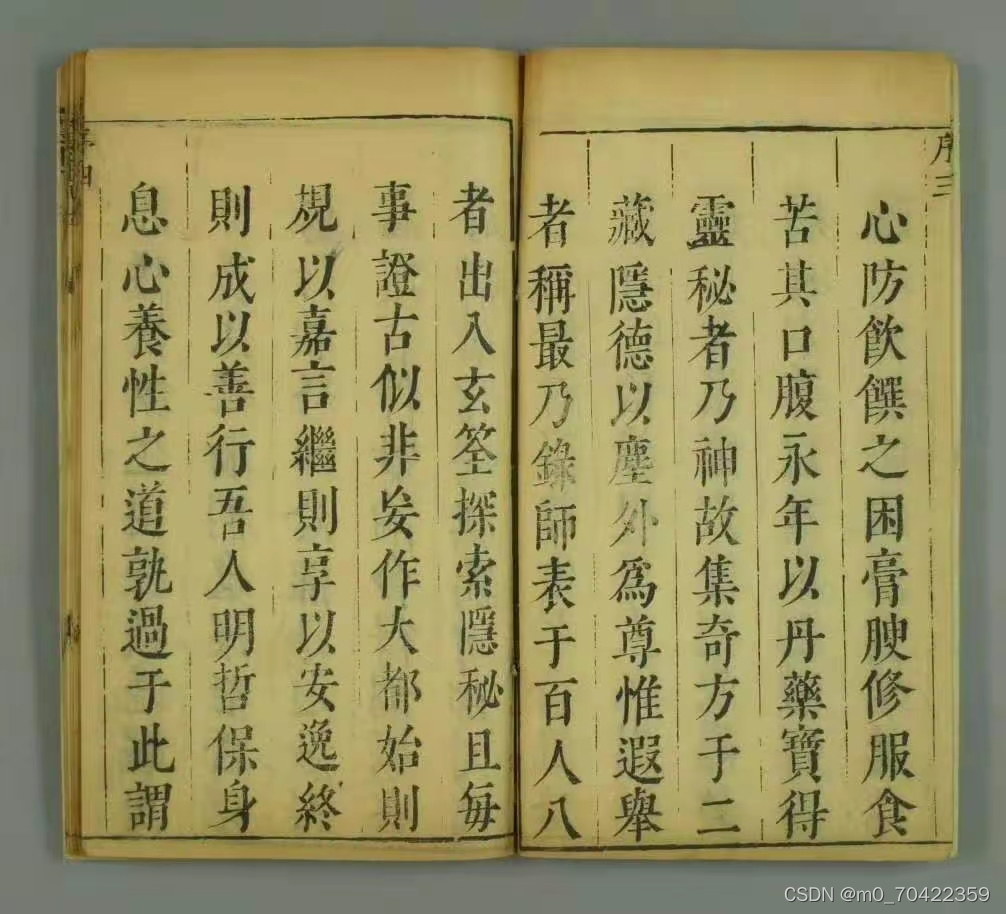 序三
心防飲饌之困膏腴修服食
苦其口腹永年以丹藥寶得
靈秘者乃神故集奇方于二
藏隱德以塵外爲尊惟遐舉
者稱最乃錄師表于百人八
者出入玄筌探索隱秘且每
事證古似非妄作大都始則
規以嘉言繼則享以安逸終
則成以善行吾人明哲保身
息心養性之道孰過于此謂
CSDN @m0_70422359